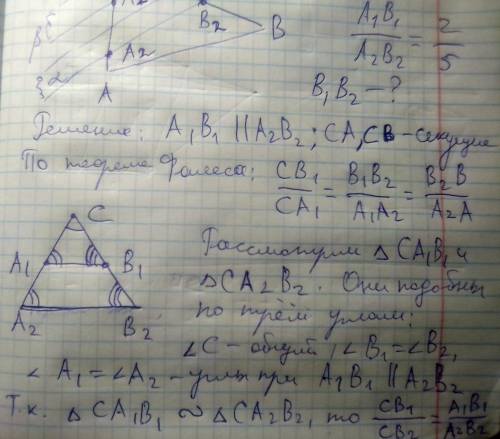 A2
B2
B
A2
A
β
α
A₁B₁/A₂B₂ = 2/5
B₁B₂ – ?
Решение: A₁B₁ ∥ A₂B₂; CA, CB – секущие
По теореме Фалеса: CB₁/CA₁ = B₁B₂/A₁A₂ = B₂B/A₂A
C
A₁
B₁
A₂
B₂
Рассмотрим △CA₁B₁ и
△CA₂B₂. Они подобны
по трём углам:
∠C – общий, ∠B₁ = ∠B₂,
∠A₁ = ∠A₂ – углы при A₁B₁ ∥ A₂B₂
Т.к. △CA₁B₁ ~ △CA₂B₂, то CB₁/CB₂ = A₁B₁/A₂B₂